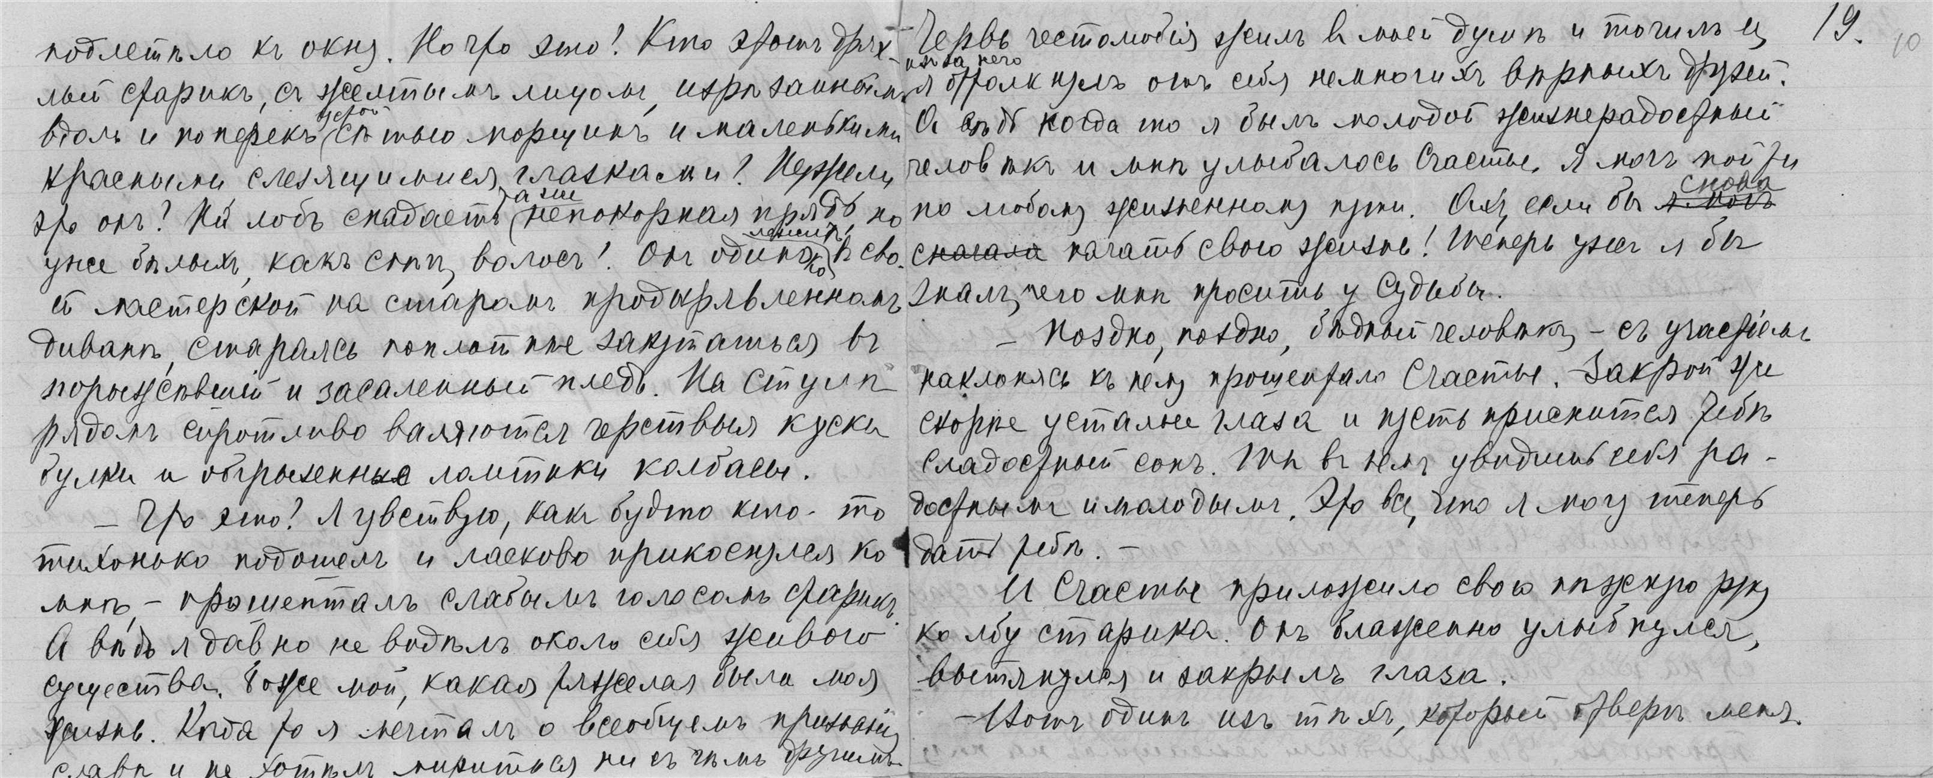 подлетѣло къ окну. Но что это! Кто этотъ дрях-
лый старикъ, съ желтымъ лицомъ, изрѣзаннымъ
вдоль и поперекъ густой сѣтью морщинъ и маленькими
красными слезящимися глазками? Неужели
это онъ? На лобъ спадаетъ та же непокорная прядь, но
уже бѣлыхъ, какъ снѣгъ, волосъ! Онъ одиноко лежитъ въ сво-
ей мастерской на старомъ продырявленномъ
диванѣ, стараясь поплотнѣе закутаться въ
порыжѣвшій и засаленный пледъ. На стулѣ
рядомъ сиротливо валяются черствыя куски
булки и обгрызенные ломтики колбасы.
— Что это? Я чувствую, какъ будто кто-то
тихонько подошелъ и ласково прикоснулся ко
мнѣ, — прошепталъ слабымъ голосомъ старикъ.
А вѣдь я давно не видѣлъ около себя живого
существа. Боже мой, какая тяжелая была моя
жизнь. Когда то я мечталъ о всеобщемъ признаніи,
славѣ и не хотѣлъ мириться ни съ чѣмъ другимъ.
19.
10
Червь честолюбія жилъ въ моей душѣ и точилъ ее,
изъ за него
я оттолкнулъ отъ себя немногихъ вѣрныхъ друзей.
А вѣдь когда то я былъ молодой жизнерадостный
человѣкъ и мнѣ улыбалось Счастье. Я могъ пойти
по любому жизненному пути. Ахъ, если бы я могъ снова
сначала начать свою жизнь! Теперь уже я бы
зналъ, чего мнѣ просить у Судьбы.
— Поздно, поздно, бѣдный человѣкъ, — съ участіемъ
наклонясь къ нему прошептало Счастье. Закрой же
скорѣе усталые глаза и пусть приснится тебѣ
сладостный сонъ. Ты въ немъ увидишь себя ра-
достнымъ и молодымъ. Это все, что я могу теперь
дать тебѣ. —
И Счастье приложило свою нѣжную руку
ко лбу старика. Онъ блаженно улыбнулся,
вытянулся и закрылъ глаза.
— Вотъ одинъ изъ тѣхъ, который отвергъ меня.